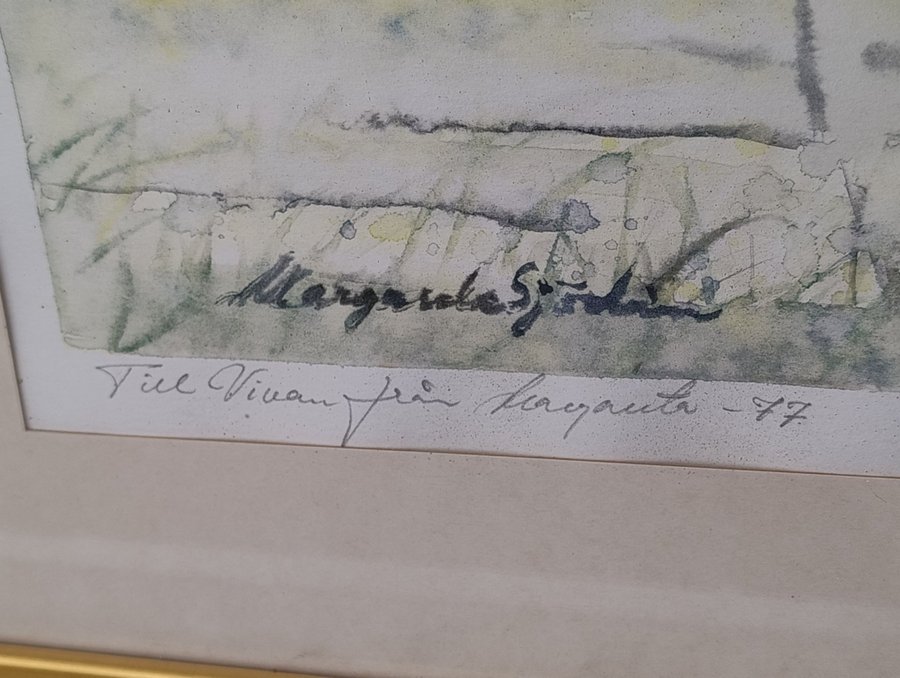 Margareta Sjödin
Till Vivan från Margareta -77